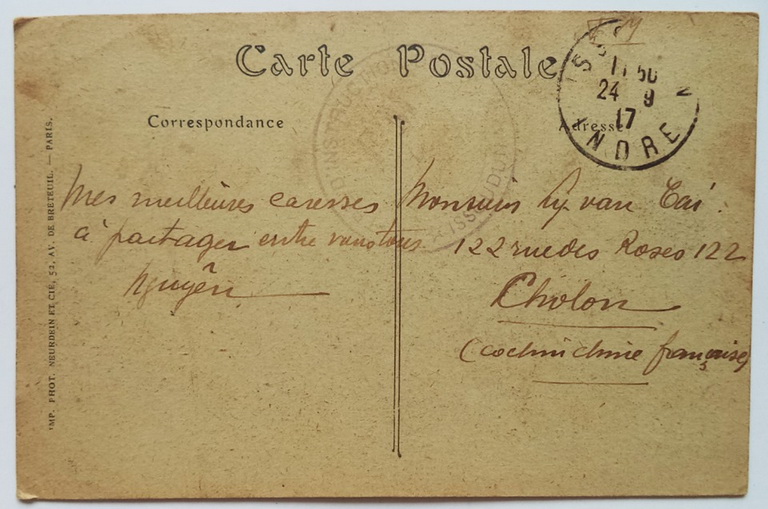 Carte Postale
Correspondance
Adresse
11 50
24 9
17
INDRE
Mes meilleures caresses
à partager entre vous tous
Nguyên
Monsieur Ly van Tai
122 rue des Roses 122
Cholon
(Cochinchine française)
IMP. PHOT. NEURDEIN ET CIE, 52, AV. DE BRETEUIL. — PARIS.